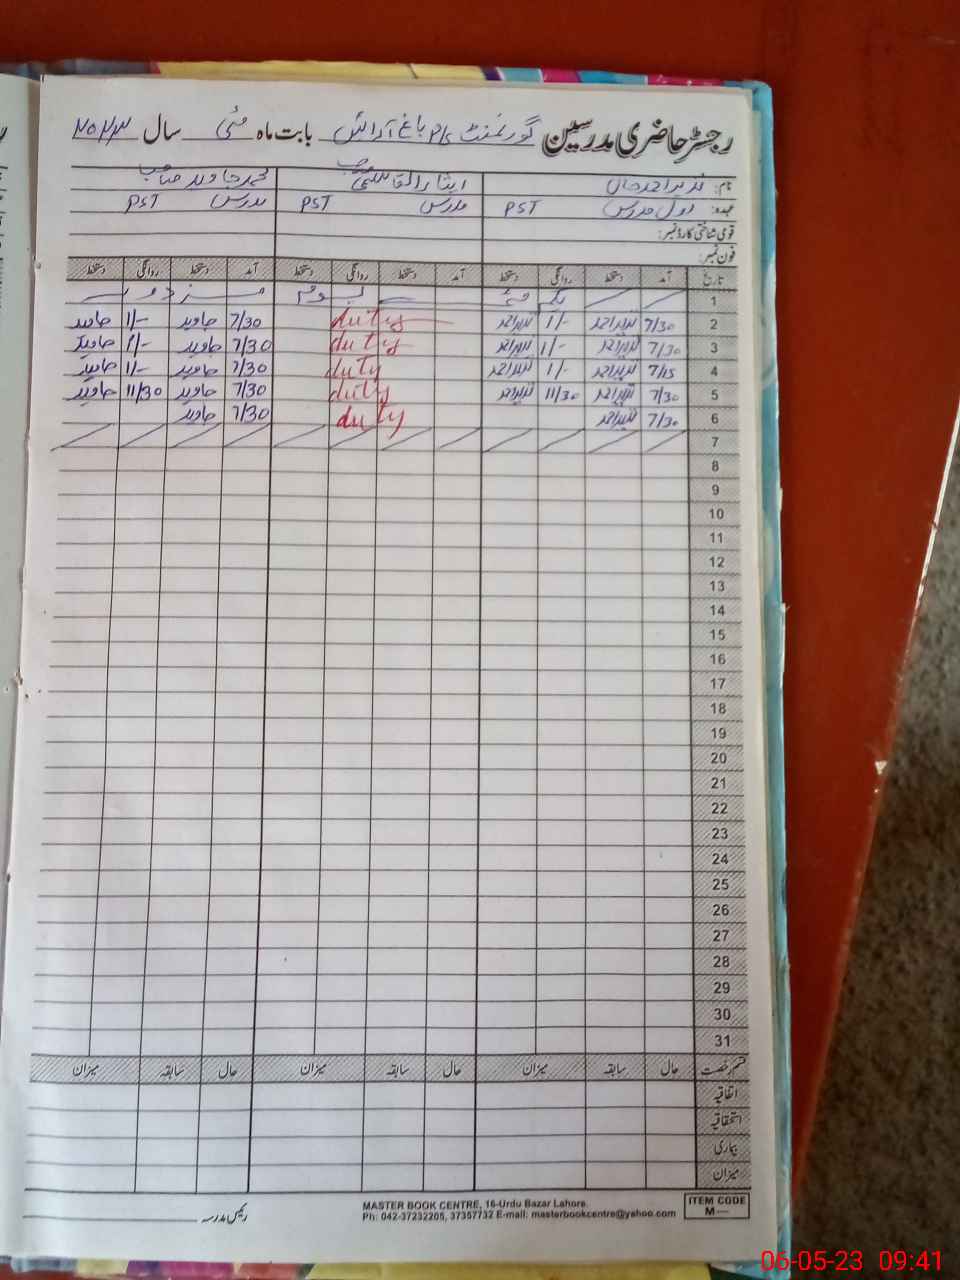 رجسٹر حاضری مدرسین گورنمنٹ P/S باغ آرائیں بابت ماہ مئی سال ۲۰۲۳
نام: نذیر احمد خان ایثار القاسمی صاحب محمد جاوید صاحب
عہدہ: اول مدرس PST مدرس PST مدرس PST
قومی شناختی کارڈ نمبر:
فون نمبر:
تاریخ آمد دستخط روانگی دستخط آمد دستخط روانگی دستخط آمد دستخط روانگی دستخط
1 یکم مئی یوم مزدور
2 7/30 نذیر احمد 1/- نذیر احمد duty 7/30 جاوید 1/- جاوید
3 7/30 نذیر احمد 1/- نذیر احمد duty 7/30 جاوید 1/- جاوید
4 7/15 نذیر احمد 1/- نذیر احمد duty 7/30 جاوید 1/- جاوید
5 7/30 نذیر احمد 11/30 نذیر احمد duty 7/30 جاوید 11/30 جاوید
6 7/30 نذیر احمد duty 7/30 جاوید
7
8
9
10
11
12
13
14
15
16
17
18
19
20
21
22
23
24
25
26
27
28
29
30
31
قسم رخصت حال سابقہ میزان حال سابقہ میزان حال سابقہ میزان
اتفاقیہ
استحقاقیہ
بیماری
میزان
ITEM CODE
M—
MASTER BOOK CENTRE, 16-Urdu Bazar Lahore.
Ph: 042-37232205, 37357732 E-mail: masterbookcentre@yahoo.com
رئیس مدرسہ
06-05-23 09:41